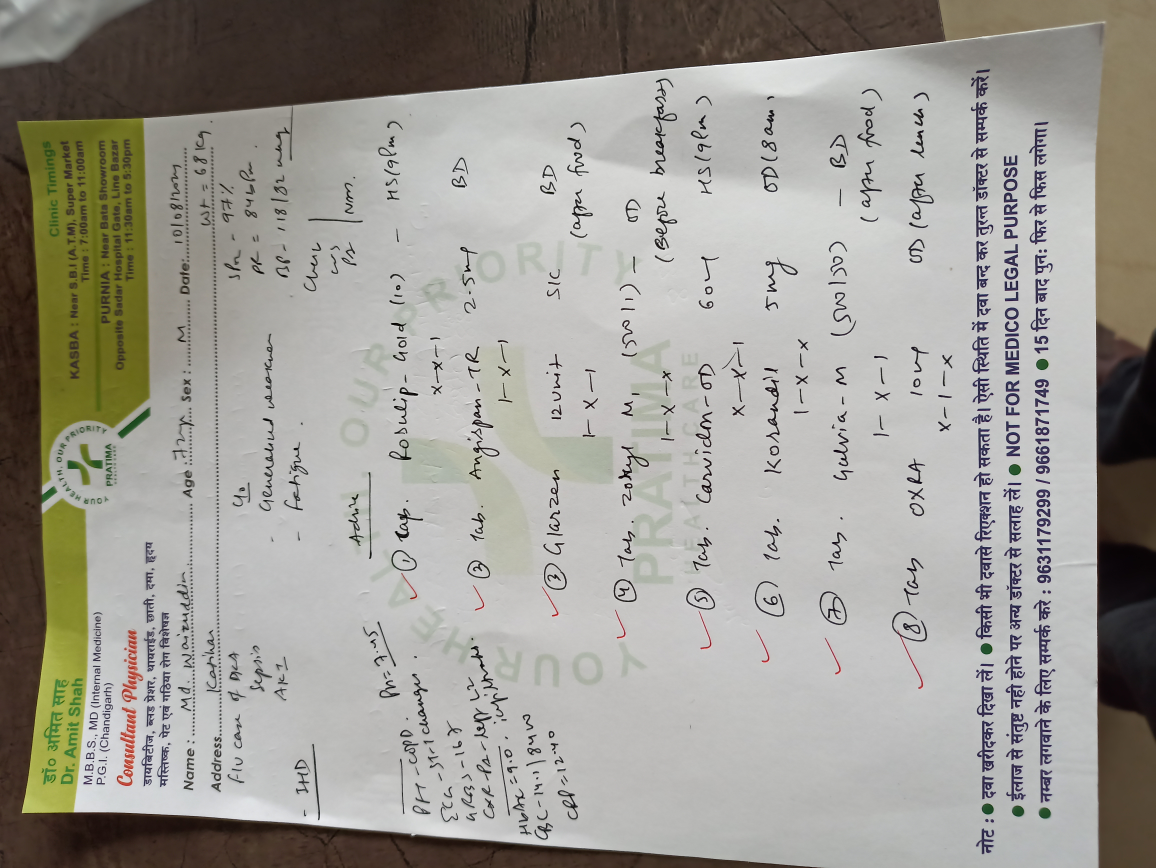 डॉ० अमित साह
Dr. Amit Shah
M.B.B.S., MD (Internal Medicine)
P.G.I. (Chandigarh)
Consultant Physician
डायबिटीज, ब्लड प्रेशर, थायराईड, छाती, दमा, हृदय
मस्तिष्क, पेट एवं गठिया रोग विशेषज्ञ
YOUR HEALTH, OUR PRIORITY
PRATIMA
HEALTHCARE
Clinic Timings
KASBA : Near S.B.I (A.T.M), Super Market
Time : 7:00am to 11:00am
PURNIA : Near Bata Showroom
Opposite Sadar Hospital Gate, Line Bazar
Time : 11:30am to 5:30pm
Name : Md. Waizuddin Age : 72yr Sex : M Date: 10/08/2024
Address Katihar Wt = 68 Kg.
F/U case of DKA
Sepsis
AKI
- IHD
c/o
- Generalised weakness
- Fatigue.
SPO2 - 97%
PR = 84 bpm.
BP - 118/82 mmHg
Chest
CVS
PA
Nm.
PFT - COPD.
ECG - ST-T changes.
GRBS - 167
HbA1c = 9.0.
CBC - 14.1 / 8400
CRP = 12.40
PH = 7.45
Advice
① Cap. Rosulip Gold (10) - HS (9 Pm)
x-x-1
② Tab. Angispan-TR 2.5mg BD
1-x-1
③ Glarzen 12 unit S/C BD
1-x-1 (after food)
④ Tab. Zoryl M1 (500/1) - OD
1-x-x (Before breakfast)
⑤ Tab. Carvidon-OD 60mg HS (9 Pm)
x-x-1
⑥ Tab. Korandil 5mg OD (8am)
1-x-x
⑦ Tab. Galvia-M (500/50) - BD
1-x-1 (after food)
⑧ Tab OXRA 10mg OD (after lunch)
x-1-x
YOUR HEALTH, OUR PRIORITY
PRATIMA
HEALTHCARE
नोट : ● दवा खरीदकर दिखा लें। ● किसी भी दवासे रिएक्शन हो सकता है। ऐसी स्थिति में दवा बन्द कर तुरन्त डॉक्टर से सम्पर्क करें।
● ईलाज से संतुष्ट नही होने पर अन्य डॉक्टर से सलाह लें। ● NOT FOR MEDICO LEGAL PURPOSE
● नम्बर लगवाने के लिए सम्पर्क करे : 9631179299 / 9661871749 ● 15 दिन बाद पुन: फिर से फिस लगेगा।